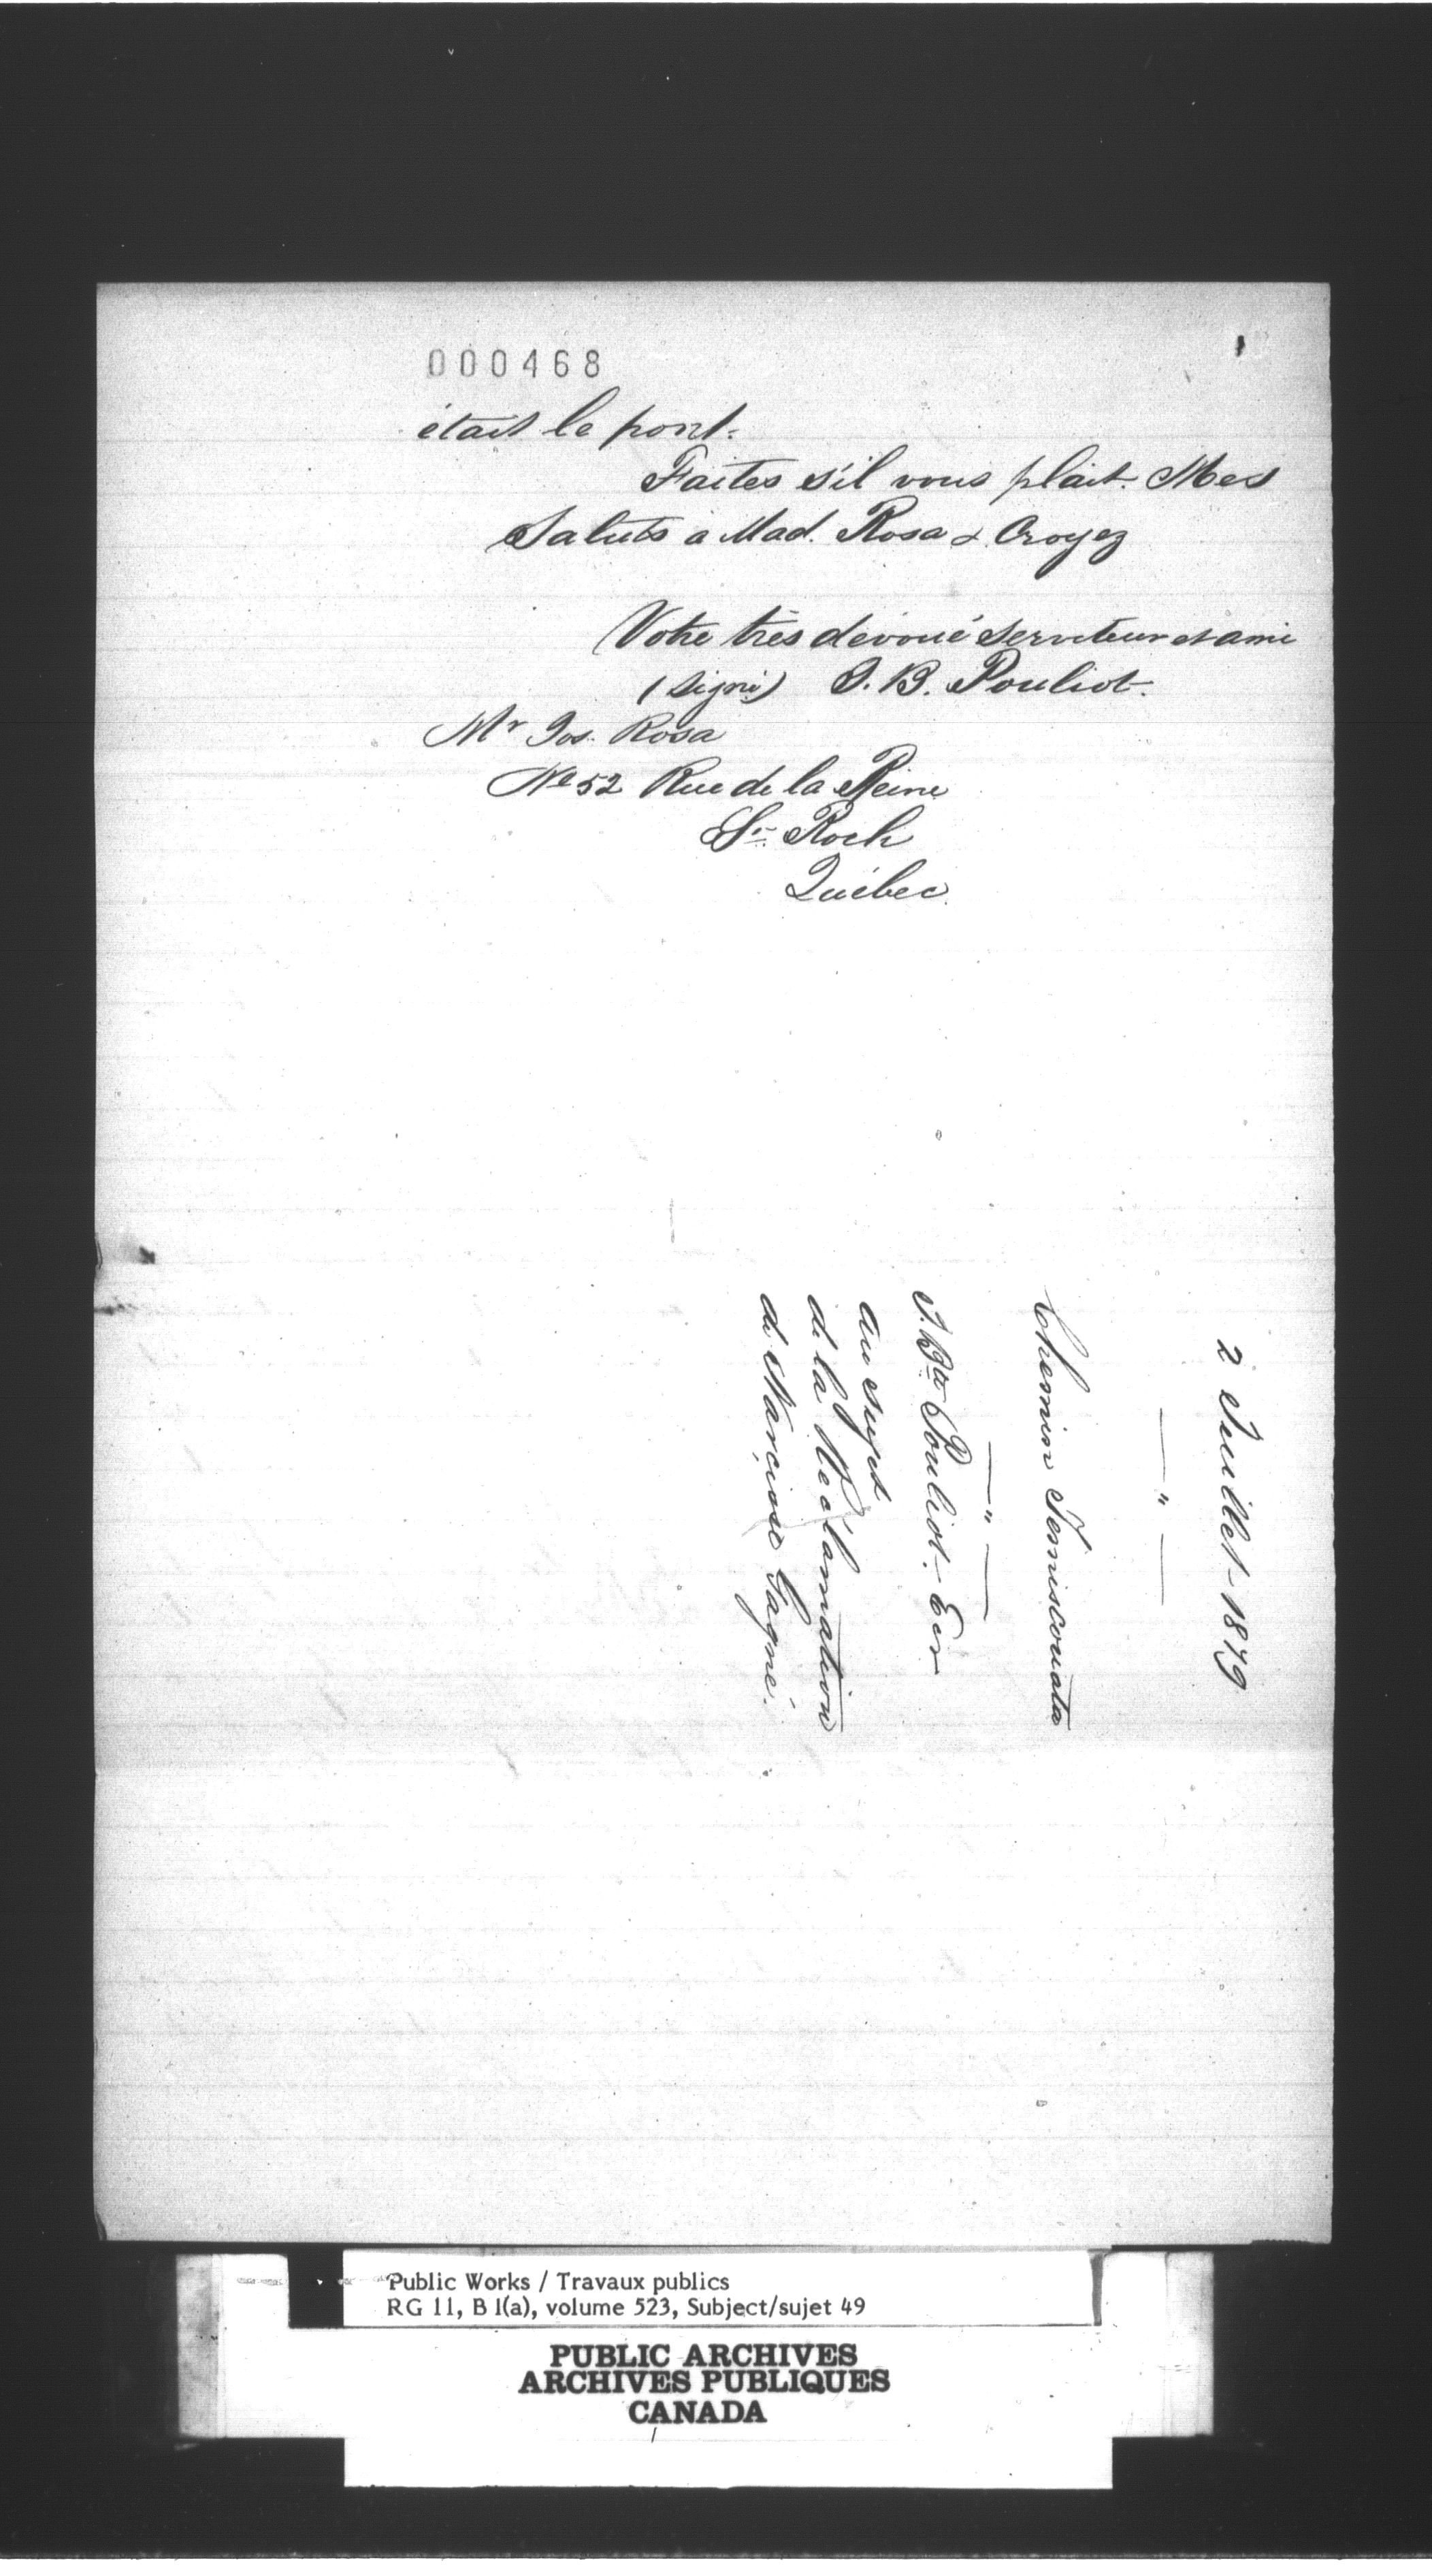 000468
était le pont.
Faites s'il vous plait. Mes
Saluts a Mad. Rosa & Croyez
Votre très dévoué serviteur et ami
(signé) J. B. Pouliot.
Mr Jos. Rosa
No 52 Rue de la Reine
St. Roch
Québec.
2 Juillet 1879
— " —
Chemin Temiscouata
— " —
J. Bte Pouliot. Ecr
au sujet
de la Reclamation
de Narcisse Gagné.
Public Works / Travaux publics
RG 11, B 1(a), volume 523, Subject/sujet 49
PUBLIC ARCHIVES
ARCHIVES PUBLIQUES
CANADA